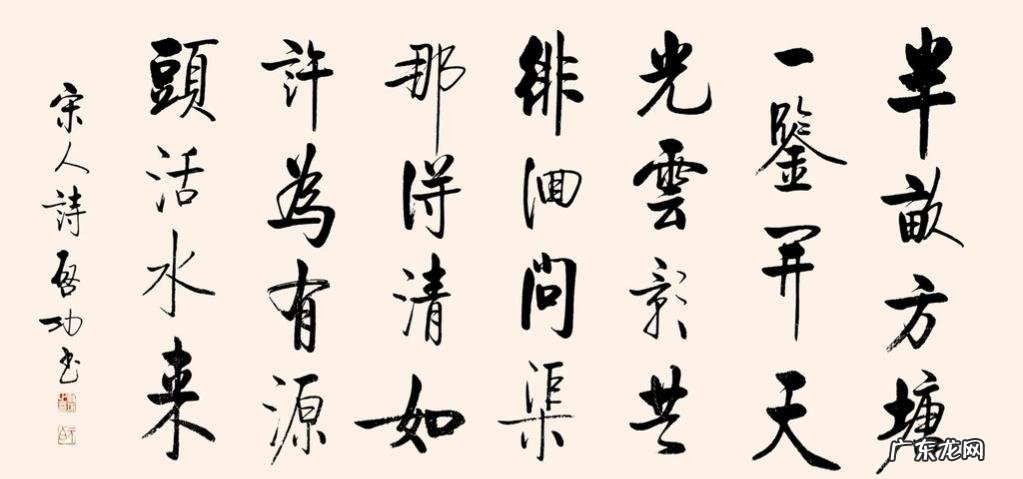 半畝方塘
一鑒開天
光雲影共
徘徊問渠
那得清如
許為有源
頭活水来
宋人詩 啓功書
广东龙网